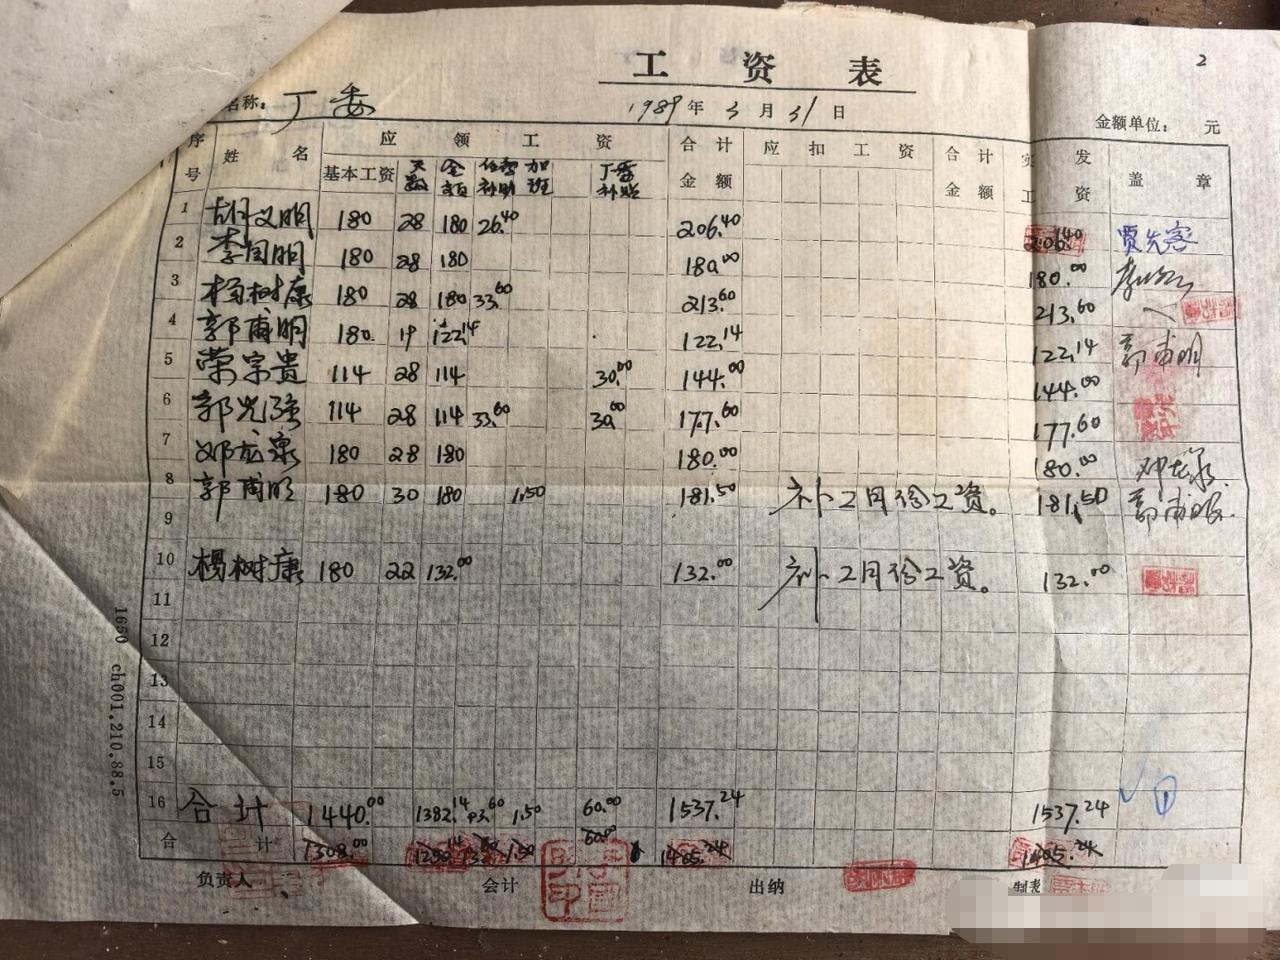 2
工资表
名称：厂委 1989年3月31日 金额单位： 元
序号 姓名 应领工资 合计金额 应扣工资 合计金额 实发工资 盖章
基本工资 天数 金额 补助 加班 厂委补贴
1 胡文明 180 28 180 26.40 206.40 206.40 贾先容
2 李国明 180 28 180 180.00 180.00
3 杨树康 180 28 180 33.60 213.60 213.60
4 郭甫明 180. 19 122.14 122.14 122.14 郭甫明
5 荣宗贵 114 28 114 30.00 144.00 144.00
6 郭光强 114 28 114 33.60 30.00 177.60 177.60
7 邓龙泉 180 28 180 180.00 180.00 邓龙泉
8 郭甫明 180 30 180 1.50 181.50 补2月份工资。 181.50 郭甫明
9
10 杨树康 180 22 132.00 132.00 补2月份工资。 132.00
11
12
13
14
15
16 合计 1440.00 1382.14 93.60 1.50 60.00 1537.24 1537.24
合计 1308.00 1.50 60.00 1405.24 1405.24
负责人 会计 出纳 制表
1650 ch001.210.88.5